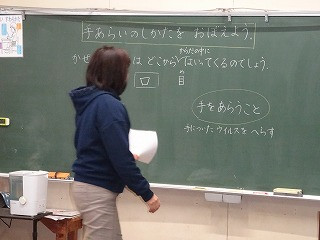 手あらいのしかたを おぼえよう。
からだの中に
かぜ は どこから はいってくるのでしょう。
口
め
目
手をあらうこと
手についた ウイルスを へらす